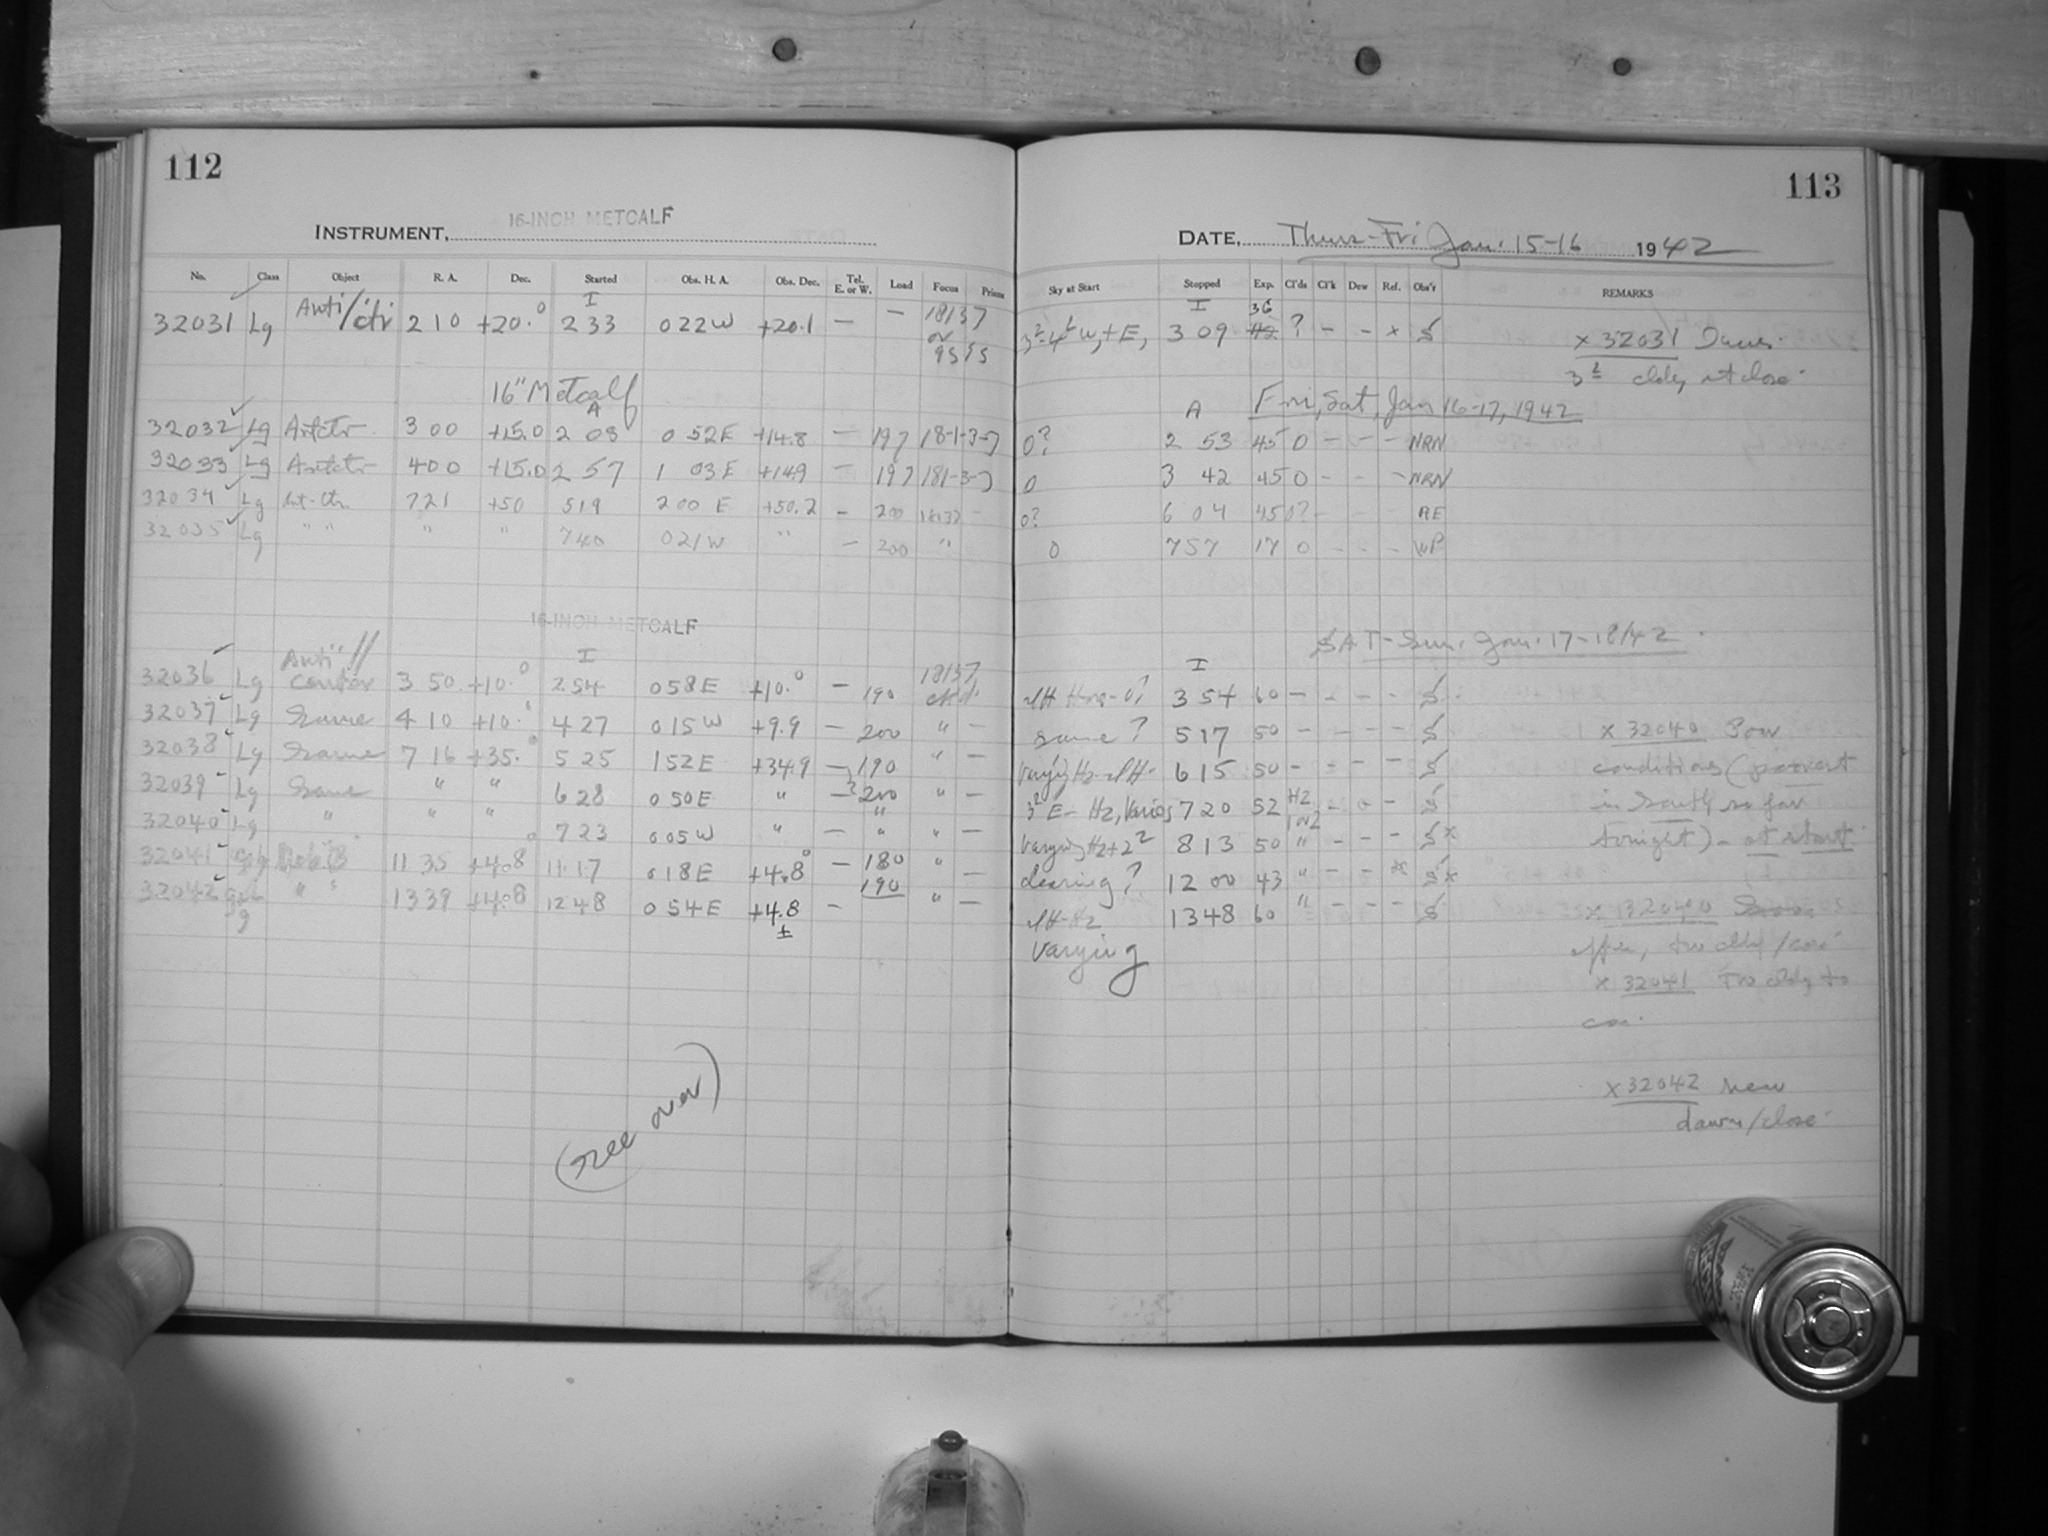 112
INSTRUMENT, 16-INCH METCALF
No. Class Object R. A. Dec. Started Obs. H. A. Obs. Dec. Tel. E. or W. Load Focus Prisms
I
32031 Lg Anti/ctr 2 10 +20.° 2 33 0 22 W +20.1 — — 18137 or
16" Metcalf
A
32032 Lg Antctr 3 00 +15.0 2 08 0 52 E +14.8 — 197 18-1-3-7
32033 Lg Antctr 4 00 +15.0 2 57 1 03 E +14.9 — 197 181-3-7
32034 Lg Ant-Ctr 7 21 +50 5 19 2 00 E +50.2 - 200 18137 -
32035 Lg " " " " 7 40 0 21 W " — 200 "
16-INCH METCALF
I
32036 Lg Anti" // Center 3 50 +10.° 2 54 0 58 E +10.° — 190 18137
32037 Lg Same 4 10 +10.° 4 27 0 15 W +9.9 — 200 " —
32038 Lg Same 7 16 +35.° 5 25 1 52 E +34.9 — 190 " —
32039 Lg Same " " 6 28 0 50 E " — 200 " —
32040 Lg " " " 7 23 0 05 W " — " " —
32041 11 35 +4.8 11 17 0 18 E +4.8° — 180 " —
32042 " 13 39 +4.8 12 48 0 54 E +4.8 ± — 190 " —
(see over)
113
DATE, Thurs-Fri Jan. 15-16 1942
Sky at Start Stopped Exp. Cl'ds Cl'k Dew Ref. Obs'r REMARKS
I
W, + E, 3 09 36 42 ? — — x S
x 32031 Dawes.
cldy at close.
A Fri, Sat, Jan 16-17, 1942
0? 2 53 45 0 — — — NRN
0 3 42 45 0 - - - NRN
0? 6 04 45 0? - - - RE
0 7 57 17 0 - - - WP
SAT-Sun. Jan. 17-18/42
I
3 54 60 — - - - S
same ? 5 17 50 - - - - S
6 15 50 - - - - S
Hz, Varies 7 20 52 Hz 1 or 2 - - S
varying Hz + 2² 8 13 50 " - - - S x
clearing? 12 00 43 " - - x S x
varying 13 48 60 " - - - S
x 32040 Poor
conditions (
in South so far
tonight) - at start.
x 32040
x 32041 Too cldy to
x 32042 near
dawn/close